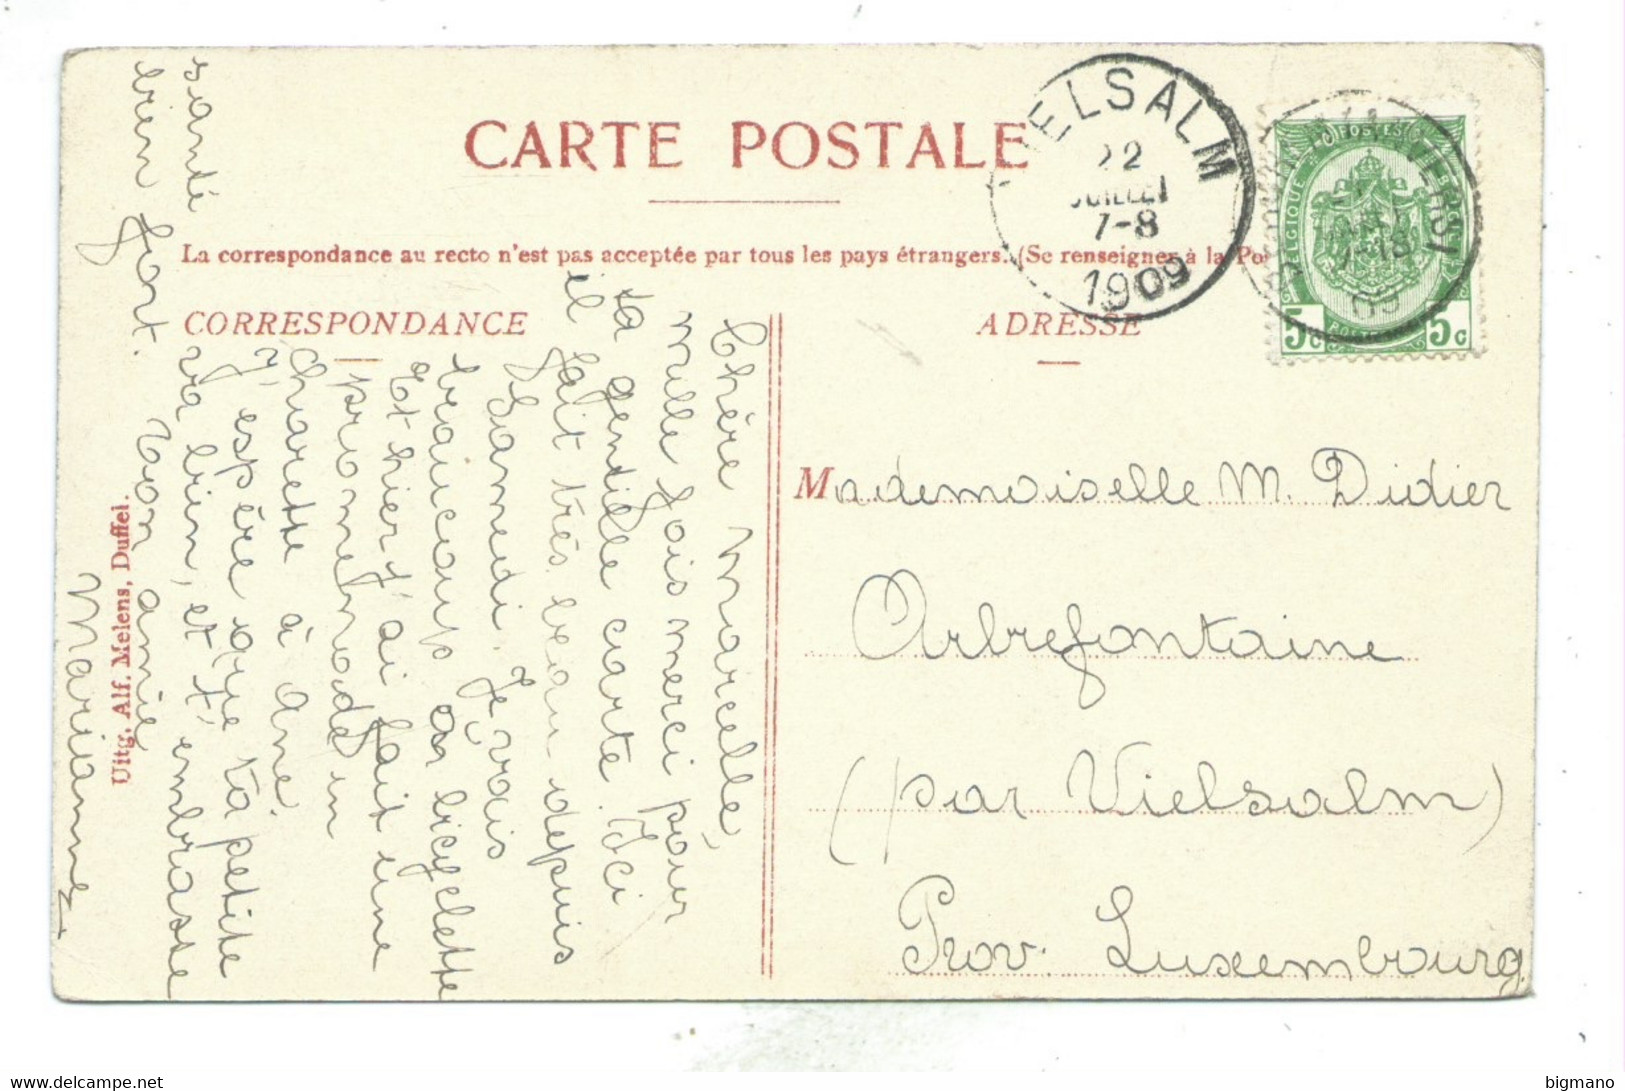 CARTE POSTALE
La correspondance au recto n'est pas acceptée par tous les pays étrangers. (Se renseigner à la Po
CORRESPONDANCE
ADRESSE
IELSALM
22
JUILLET
7-8
1909
POSTES
BELGIQUE
5c
5c
POSTE
Mademoiselle M. Didier
Arbrefontaine
(par Vielsalm)
Prov. Luxembourg
Chère Marcelle,
mille fois merci pour
ta gentille carte. Ici
il fait très beau depuis
Samedi. Je vais
beaucoup en bicyclette
Et hier j'ai fait une
promenade en
charette à âne.
J'espère que ta petite
va bien, et t'embrasse
bien fort.
santé
Ton amie
Marianne
Uitg. Alf. Melens, Duffel.
bigmano
www.delcampe.net